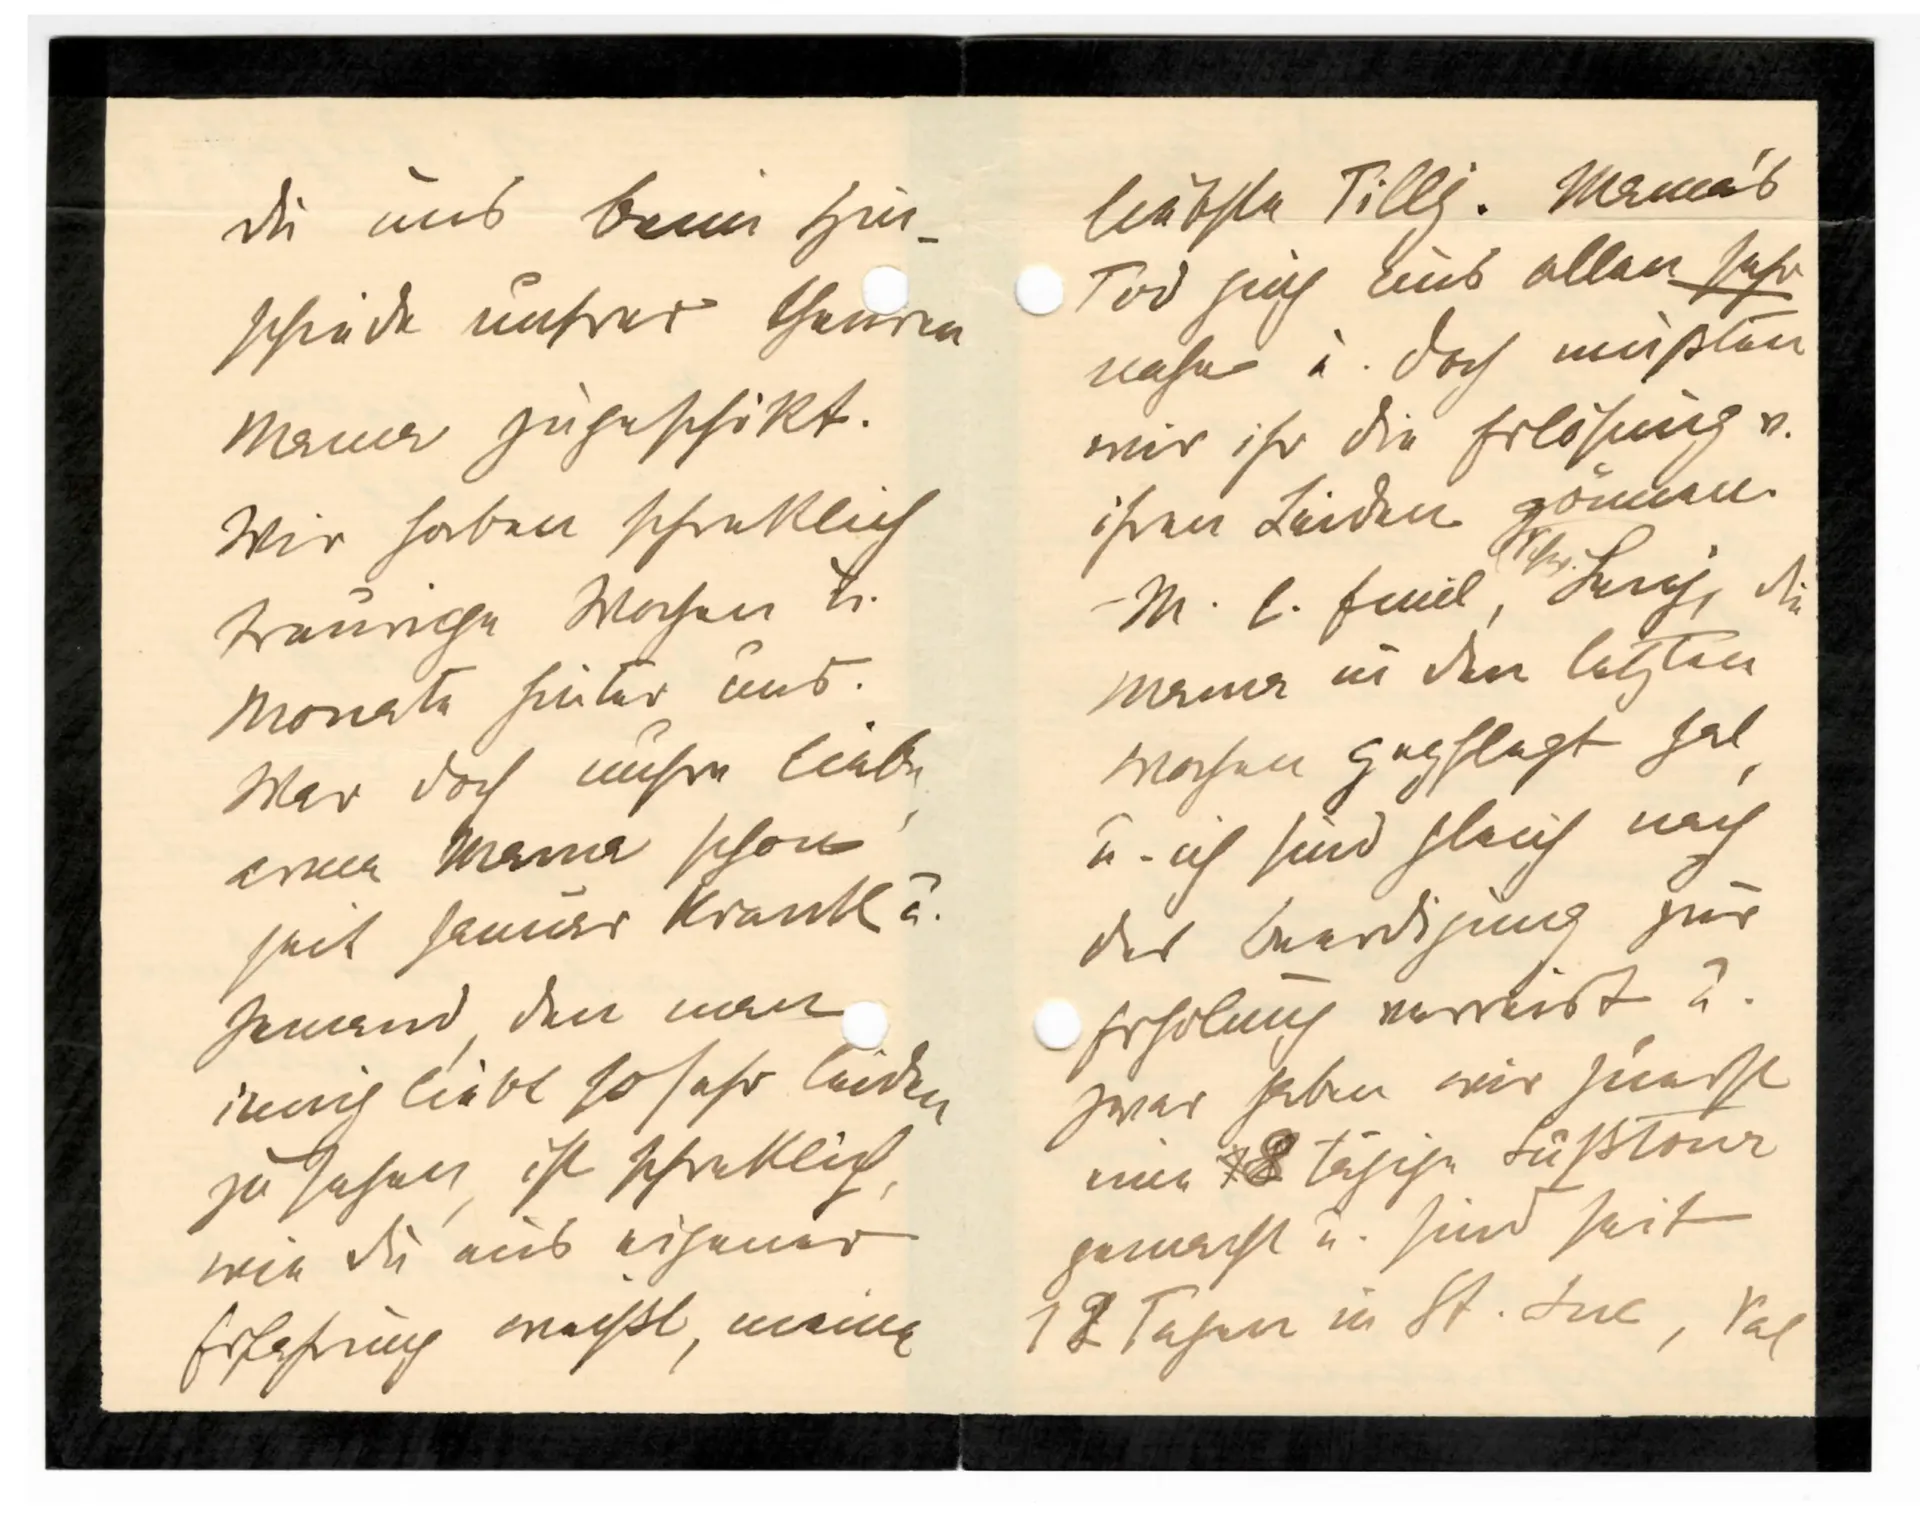 Du uns beim Hin-
scheide unsrer theuren
Mama zugeschikt.
Wir haben schreklich
traurige Wochen u.
Monate hinter uns.
War doch unsre liebe,
arme Mama schon
seit Januar krank u.
Jemand, den man
innig liebt so sehr leiden
zu sehen, ist schreklich,
wie Du aus eigener
Erfahrung weißt, meine
liebste Tilly. Mama's
Tod ging uns allen sehr
nahe u. doch mußten
wir ihr die Erlösung v.
ihren Leiden gönnen.
– M. l. Emil, die
Mama in den letzten
Wochen gepflegt hat,
u. ich sind gleich nach
der Beerdigung zur
Erholung verreist u.
zwar haben wir zuerst
eine 8 tägige Fußtour
gemacht u. sind seit
12 Tagen in St. Luc, Val